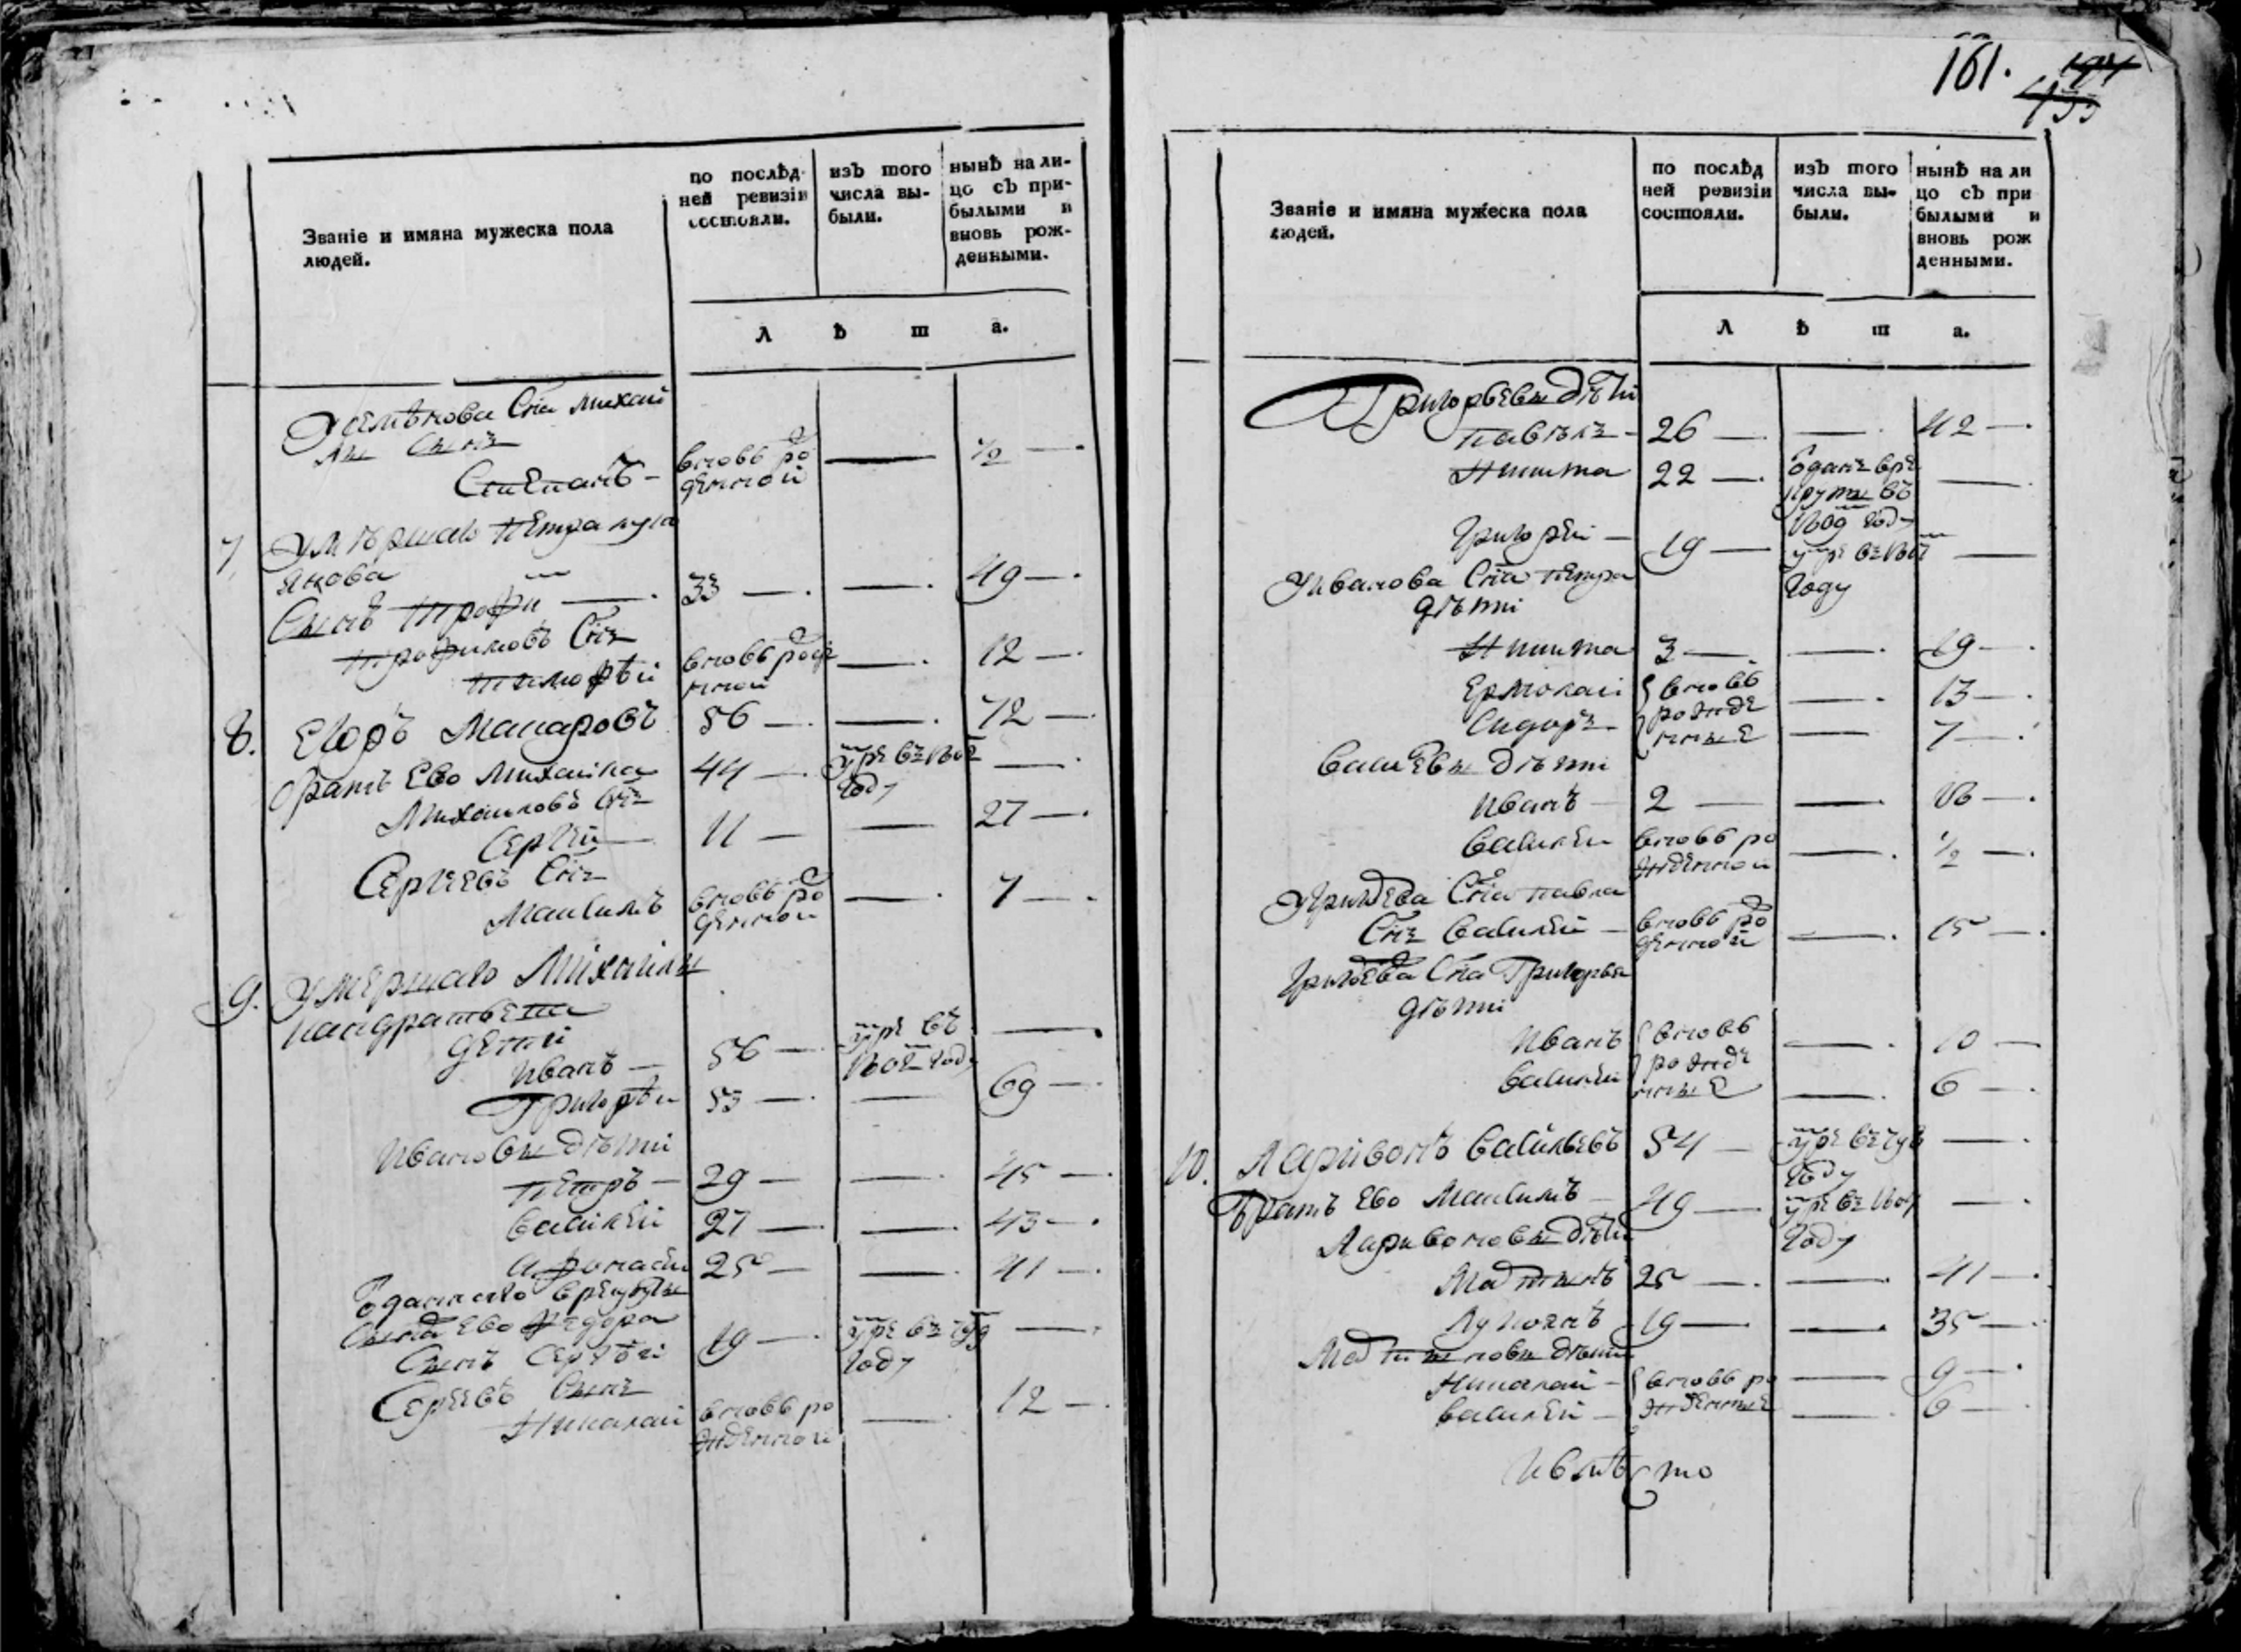 161.
Званіе и имяна мужеска пола
людей.
по послѣд-
ней ревизіи
состояли.
изъ того
числа вы-
были.
нынѣ на ли-
цо съ при-
былыми и
вновь рож-
денными.
Л ѣ т а.
Сна михаи
лы сынъ
Степанъ — вновь ро ½ —
денной
7. Умершаго петра лукѣ
янова
Сынъ трофи 33 — — 49 —
трофимовъ Снъ
тимофѣй вновь рож — 12 —
нной
8. Егоръ Макаровъ 56 — — 72 —
братъ Ево Михаила 44 — умре въ —
году
Михаиловъ Снъ
Сергѣй 11 — — 27 —
Сергѣевъ Снъ
Максимъ вновь ро — 7 —
денной
9. Умершаго Михаилы
кандратьева
дети
Иванъ — 56 — умре въ —
году
Григорѣй 53 — — 69 —
Ивановы дѣти
петръ — 29 — — 45 —
василей 27 — — 43 —
афонасей 25 — — 41 —
Отданнаго врекруты
сына ево федора
Сынъ Сергѣй 19 — умре въ —
году
Сергѣевъ Сынъ
Николай вновь ро — 12 —
жденной
Званіе и имяна мужеска пола
людей.
по послѣд
ней ревизіи
состояли.
изъ того
числа вы-
были.
нынѣ на ли
цо съ при
былыми и
вновь рож
денными.
Л ѣ т а.
Григорьевы дѣти
павелъ — 26 — — 42 —
Никита 22 — отданъ вре —
круты въ
году
Григорѣй — 19 — умре въ —
году
Уиванова Сна петра
дѣти
Никита 3 — — 19 —
Ермолай вновь — 13 —
Сидоръ рожде — 7 —
нные
Васильевы дѣти
Иванъ 2 — — 18 —
василей вновь ро — ½ —
жденной
Сна павла
Снъ василей — вновь ро — 15 —
денной
Сна Григорья
дѣти
Иванъ вновь — 10 —
василей рожде — 6 —
нные
10. Ларивонъ васильевъ 54 — умре въ —
году
братъ ево Максимъ — 49 — умре въ —
году
Ларивоновы дѣти
Мартынъ 25 — — 41 —
Лукоянъ 19 — — 35 —
Мартыновы дѣти
Николай — вновь ро — 9 —
василей — жденные — 6 —
Ивлѣсто